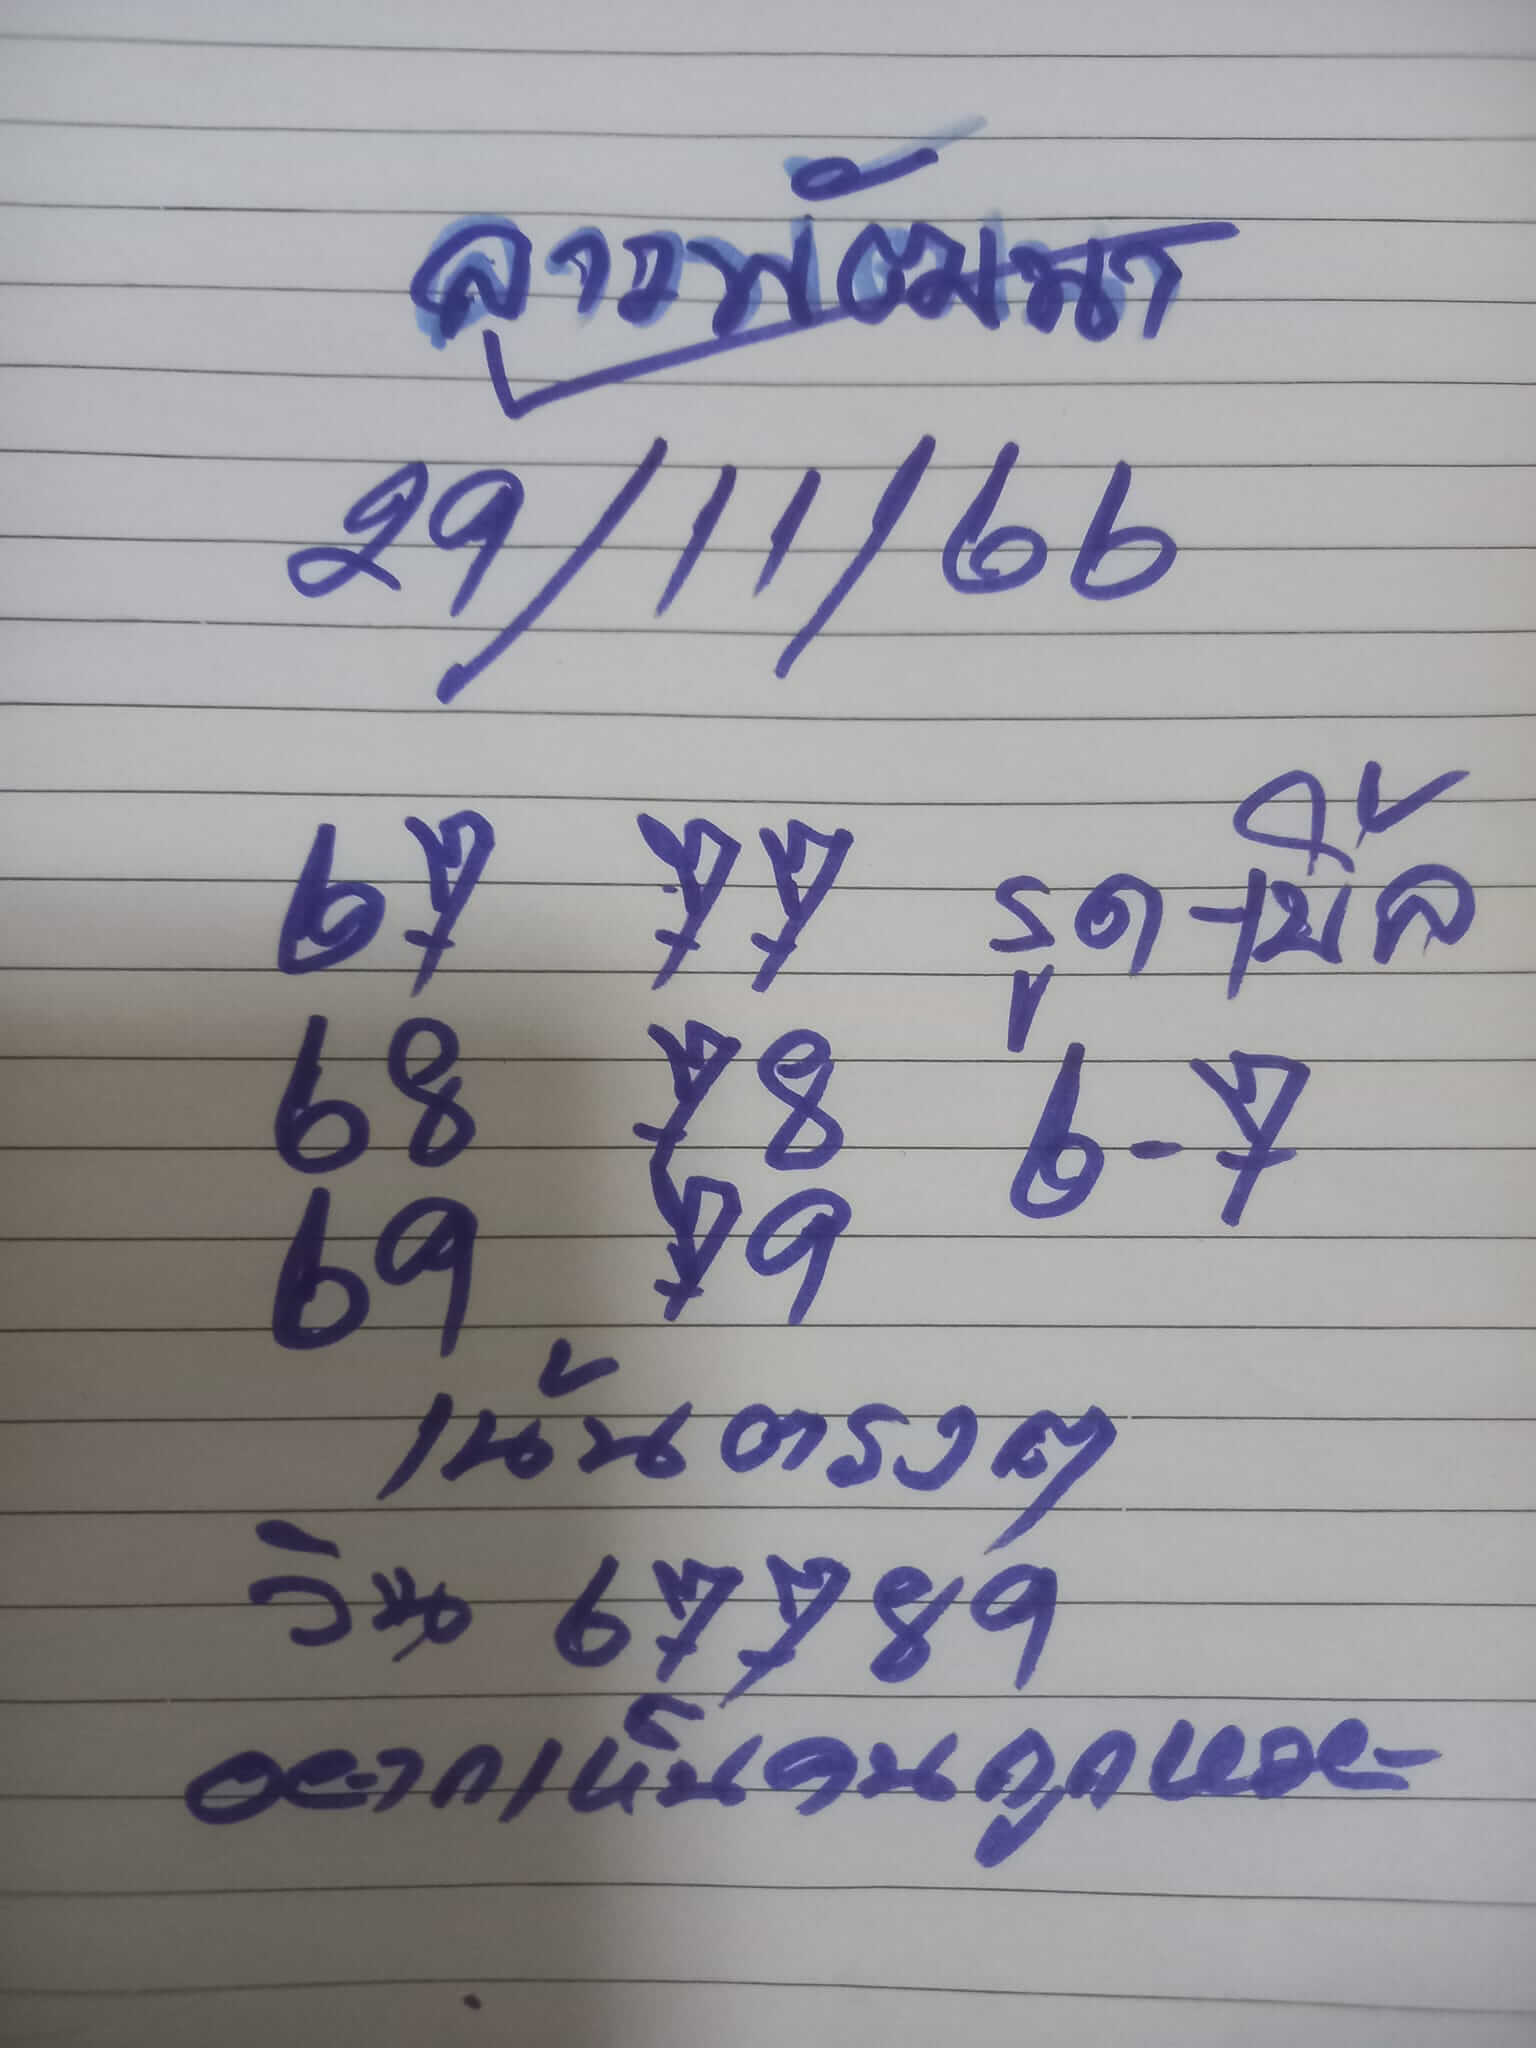 ลาวพัฒนา
29/11/66
67 77 รูด-ปิ้ล
68 78 6-7
69 79
เน้นตรงๆ
วิน 67789
อยากเห็นคนถูกหวย